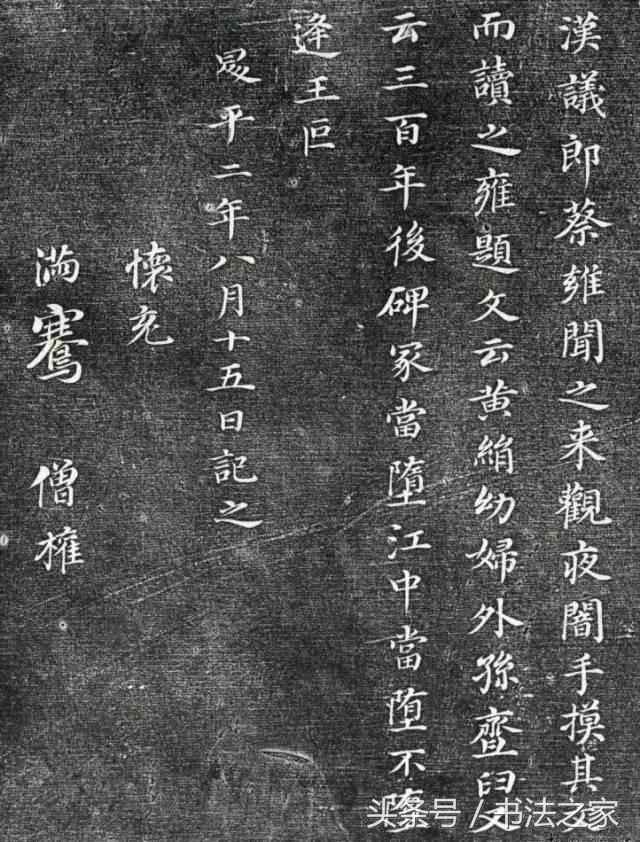 漢議郎蔡雍聞之来觀夜闇手摸其文
而讀之雍題文云黄絹幼婦外孫齏臼又
云三百年後碑冢當墮江中當墮不墮
逢王叵
昇平二年八月十五日記之
懷充
滿騫 僧權
头条号 / 书法之家